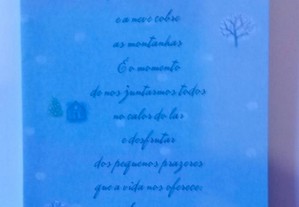 e a neve cobre
as montanhas
É o momento
de nos juntarmos todos
no calor do lar
e desfrutar
dos pequenos prazeres
que a vida nos oferece: